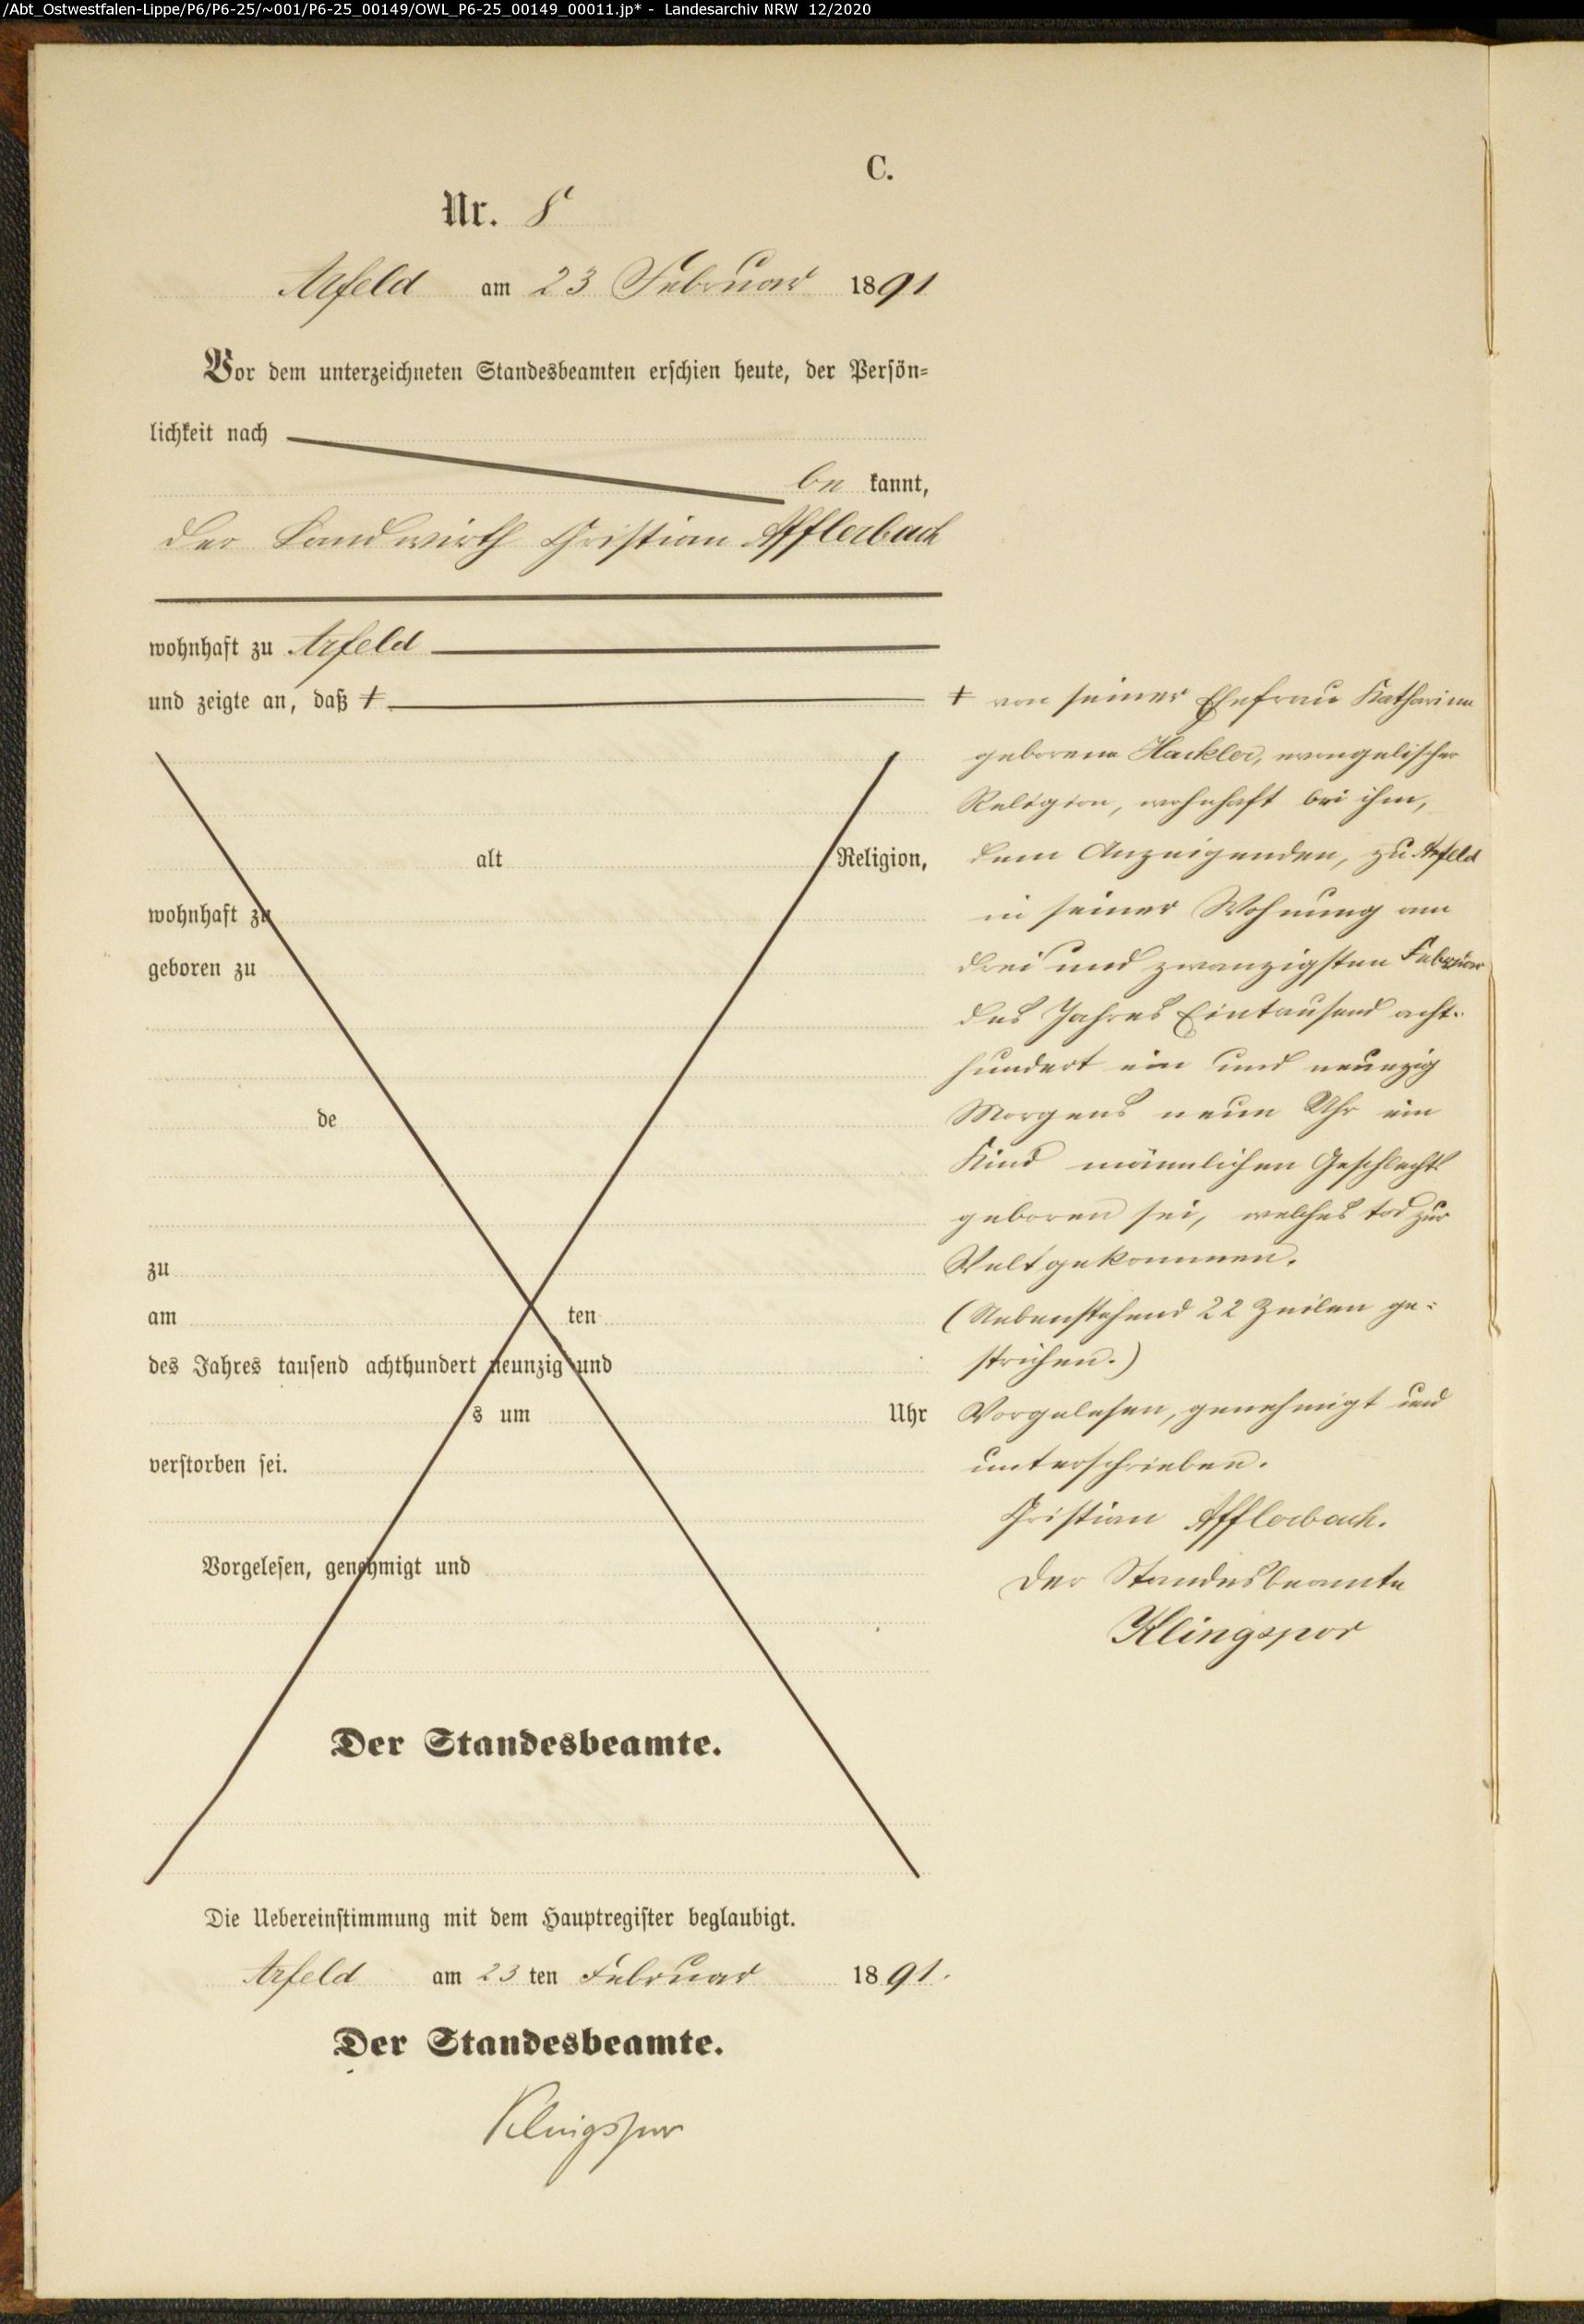 /Abt_Ostwestfalen-Lippe/P6/P6-25/~001/P6-25_00149/OWL_P6-25_00149_00011.jp* - Landesarchiv NRW 12/2020
C.
Nr. 8
Arfeld am 23 Februar 1891
Vor dem unterzeichneten Standesbeamten erschien heute, der Persön-
lichkeit nach
be kannt,
der Landwirth Christian Afflerbach
wohnhaft zu Arfeld
und zeigte an, daß +
alt Religion,
wohnhaft zu
geboren zu
de
zu
am ten
des Jahres tausend achthundert neunzig und
s um Uhr
verstorben sei.
Vorgelesen, genehmigt und
Der Standesbeamte.
+ von seiner Ehefrau Katharine
geborene Hackler, evangelischer
Religion, wohnhaft bei ihm,
dem Anzeigenden, zu Arfeld
in seiner Wohnung am
drei und zwanzigsten Februar
des Jahres Eintausend acht-
hundert ein und neunzig
Morgens neun Uhr ein
Kind männlichen Geschlechts
geboren sei, welches tod zur
Welt gekommen.
(Nebenstehend 22 Zeilen ge-
strichen.)
Vorgelesen, genehmigt und
unterschrieben.
Christian Afflerbach.
Der Standesbeamte
Klingspor
Die Uebereinstimmung mit dem Hauptregister beglaubigt.
Arfeld am 23 ten Februar 1891.
Der Standesbeamte.
Klingspor